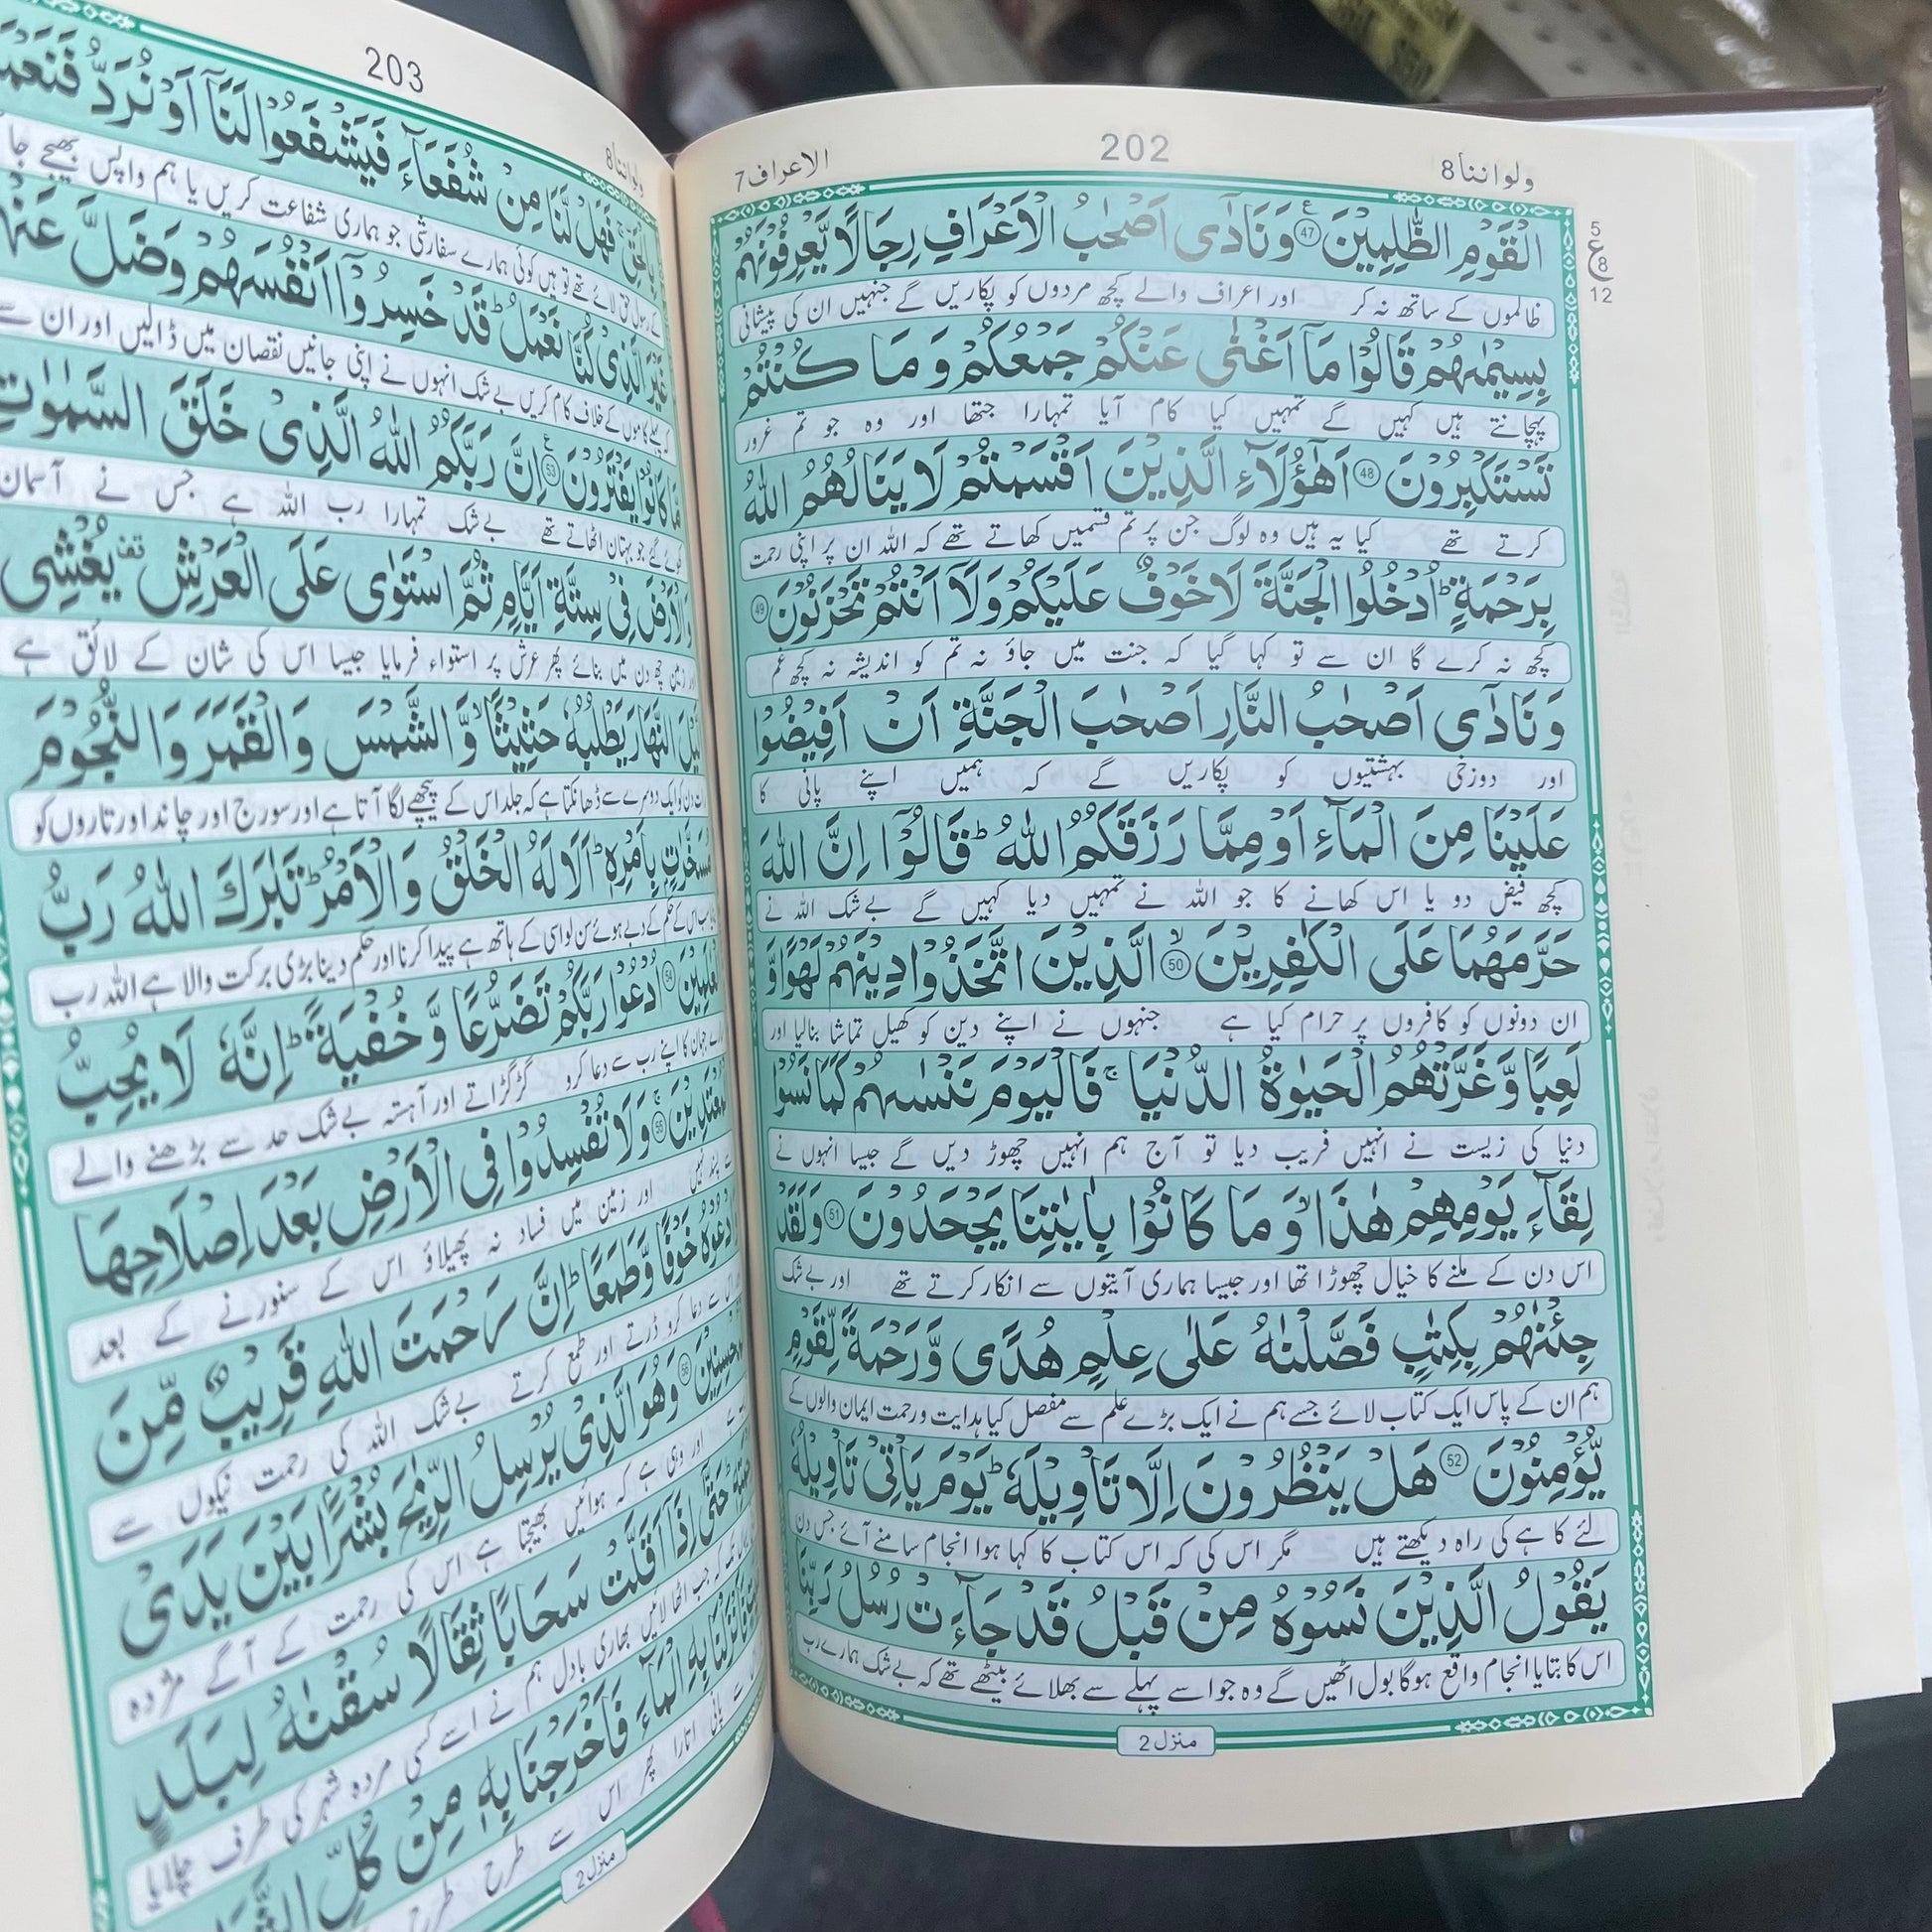 ولواننا 8
202
الاعراف 7
5
ع
8
12
الْقَوْمِ الظّٰلِمِيْنَ ۴۷ وَنَادٰۤى اَصْحٰبُ الْاَعْرَافِ رِجَالًا يَّعْرِفُوْنَهُمْ
ظالموں کے ساتھ نہ کر اور اعراف والے کچھ مردوں کو پکاریں گے جنہیں ان کی پیشانی
بِسِيْمٰىهُمْ قَالُوْا مَاۤ اَغْنٰى عَنْكُمْ جَمْعُكُمْ وَ مَا كُنْتُمْ
پہچانتے ہیں کہیں گے تمہیں کیا کام آیا تمہارا جتھا اور وہ جو تم غرور
تَسْتَكْبِرُوْنَ 48 اَهٰۤؤُلَآءِ الَّذِيْنَ اَقْسَمْتُمْ لَا يَنَالُهُمُ اللّٰهُ
کرتے تھے کیا یہ ہیں وہ لوگ جن پر تم قسمیں کھاتے تھے کہ اللہ ان پر اپنی رحمت
بِرَحْمَةٍ ؕ اُدْخُلُوا الْجَنَّةَ لَا خَوْفٌ عَلَيْكُمْ وَلَاۤ اَنْتُمْ تَحْزَنُوْنَ 49
کچھ نہ کرے گا ان سے تو کہا گیا کہ جنت میں جاؤ نہ تم کو اندیشہ نہ کچھ غم
وَنَادٰۤى اَصْحٰبُ النَّارِ اَصْحٰبَ الْجَنَّةِ اَنْ اَفِيْضُوْا
اور دوزخی بہشتیوں کو پکاریں گے کہ ہمیں اپنے پانی کا
عَلَيْنَا مِنَ الْمَآءِ اَوْ مِمَّا رَزَقَكُمُ اللّٰهُ ؕ قَالُوْۤا اِنَّ اللّٰهَ
کچھ فیض دو یا اس کھانے کا جو اللہ نے تمہیں دیا کہیں گے بے شک اللہ نے
حَرَّمَهُمَا عَلَى الْكٰفِرِيْنَ ۙ 50 الَّذِيْنَ اتَّخَذُوْا دِيْنَهُمْ لَهْوًا وَّ
ان دونوں کو کافروں پر حرام کیا ہے جنہوں نے اپنے دین کو کھیل تماشا بنالیا اور
لَعِبًا وَّغَرَّتْهُمُ الْحَيٰوةُ الدُّنْيَا ۚ فَالْيَوْمَ نَنْسٰىهُمْ كَمَا نَسُوْا
دنیا کی زیست نے انہیں فریب دیا تو آج ہم انہیں چھوڑ دیں گے جیسا انہوں نے
لِقَآءَ يَوْمِهِمْ هٰذَا ۙ وَ مَا كَانُوْا بِاٰيٰتِنَا يَجْحَدُوْنَ 51 وَلَقَدْ
اس دن کے ملنے کا خیال چھوڑا تھا اور جیسا ہماری آیتوں سے انکار کرتے تھے اور بے شک
جِئْنٰهُمْ بِكِتٰبٍ فَصَّلْنٰهُ عَلٰى عِلْمٍ هُدًى وَّرَحْمَةً لِّقَوْمٍ
ہم ان کے پاس ایک کتاب لائے جسے ہم نے ایک بڑے علم سے مفصل کیا ہدایت و رحمت ایمان والوں کے
يُّؤْمِنُوْنَ 52 هَلْ يَنْظُرُوْنَ اِلَّا تَاْوِيْلَهٗ ؕ يَوْمَ يَاْتِيْ تَاْوِيْلُهٗ
لئے کاہے کی راہ دیکھتے ہیں مگر اس کی کہ اس کتاب کا کہا ہوا انجام سامنے آئے جس دن
يَقُوْلُ الَّذِيْنَ نَسُوْهُ مِنْ قَبْلُ قَدْ جَآءَتْ رُسُلُ رَبِّنَا
اس کا بتایا انجام واقع ہوگا بول اٹھیں گے وہ جو اسے پہلے سے بھلائے بیٹھے تھے کہ بے شک ہمارے رب
منزل 2
ولواننا 8
203
بِالْحَقِّ ۚ فَهَلْ لَّنَا مِنْ شُفَعَآءَ فَيَشْفَعُوْا لَنَاۤ اَوْ نُرَدُّ
کے رسول حق لائے تھے تو ہیں کوئی ہمارے سفارشی جو ہماری شفاعت کریں یا ہم واپس بھیجے
غَيْرَ الَّذِيْ كُنَّا نَعْمَلُ ؕ قَدْ خَسِرُوْۤا اَنْفُسَهُمْ وَضَلَّ
کاموں کے خلاف کام کریں بے شک انہوں نے اپنی جانیں نقصان میں ڈالیں اور ان سے
مَّا كَانُوْا يَفْتَرُوْنَ 53 اِنَّ رَبَّكُمُ اللّٰهُ الَّذِيْ خَلَقَ السَّمٰوٰتِ
جو بہتان اٹھاتے تھے بے شک تمہارا رب اللہ ہے جس نے آسمان
وَالْاَرْضَ فِيْ سِتَّةِ اَيَّامٍ ثُمَّ اسْتَوٰى عَلَى الْعَرْشِ قف يُغْشِى
زمین چھ دن میں بنائے پھر عرش پر استواء فرمایا جیسا اس کی شان کے لائق ہے
النَّهَارَ يَطْلُبُهٗ حَثِيْثًا ۙ وَّالشَّمْسَ وَالْقَمَرَ وَالنُّجُوْمَ
دن کو ایک دوسرے سے ڈھانکتا ہے کہ جلد اس کے پیچھے لگا آتا ہے اور سورج اور چاند اور تاروں کو
بِاَمْرِهٖ ؕ اَلَا لَهُ الْخَلْقُ وَالْاَمْرُ ؕ تَبٰرَكَ اللّٰهُ رَبُّ
اس کے حکم کے دبے ہوئے سن لو اسی کے ہاتھ ہے پیدا کرنا اور حکم دینا بڑی برکت والا ہے اللہ رب
54 اُدْعُوْا رَبَّكُمْ تَضَرُّعًا وَّ خُفْيَةً ؕ اِنَّهٗ لَا يُحِبُّ
جہان کا اپنے رب سے دعا کرو گڑگڑاتے اور آہستہ بے شک حد سے بڑھنے والے
55 وَلَا تُفْسِدُوْا فِى الْاَرْضِ بَعْدَ اِصْلَاحِهَا
پسند نہیں اور زمین میں فساد نہ پھیلاؤ اس کے سنورنے کے بعد
خَوْفًا وَّطَمَعًا ؕ اِنَّ رَحْمَتَ اللّٰهِ قَرِيْبٌ مِّنَ
سے دعا کرو ڈرتے اور طمع کرتے بے شک اللہ کی رحمت نیکوں سے
56 وَهُوَ الَّذِيْ يُرْسِلُ الرِّيٰحَ بُشْرًۢا بَيْنَ يَدَىْ
اور وہی ہے کہ ہوائیں بھیجتا ہے اس کی رحمت کے آگے مژدہ
حَتّٰۤى اِذَاۤ اَقَلَّتْ سَحَابًا ثِقَالًا سُقْنٰهُ لِبَلَدٍ
کہ جب اٹھا لائیں بھاری بادل ہم نے اسے کسی مردہ شہر کی طرف چلایا
بِهِ الْمَآءَ فَاَخْرَجْنَا بِهٖ مِنْ كُلِّ
پانی اتارا پھر اس سے طرح طرح
منزل 2